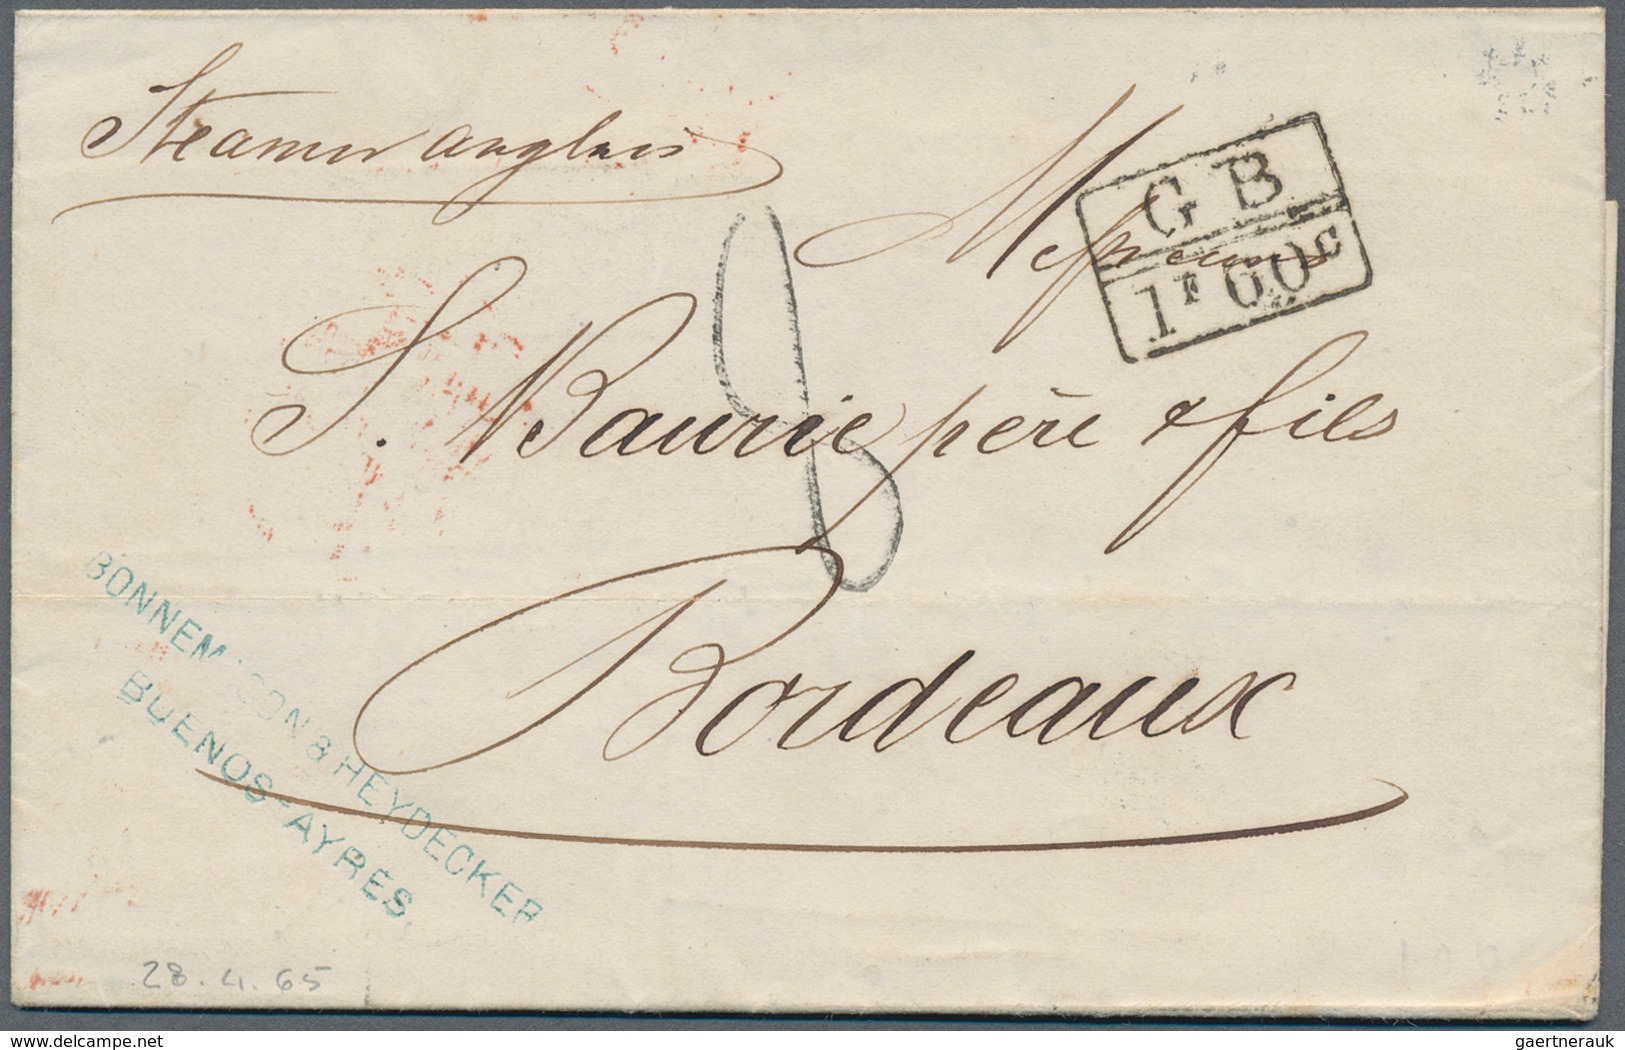 Steamer anglais
Messieurs
G B
1F 60C
8
S. Baurie père & fils
Bordeaux
& HEYDECKER
BUENOS-AYRES.
28.4.65
www.delcampe.net
gaertnerauk